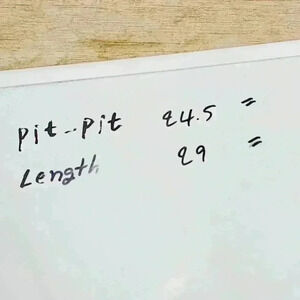 Pit--Pit 24.5 "
Length 29 "